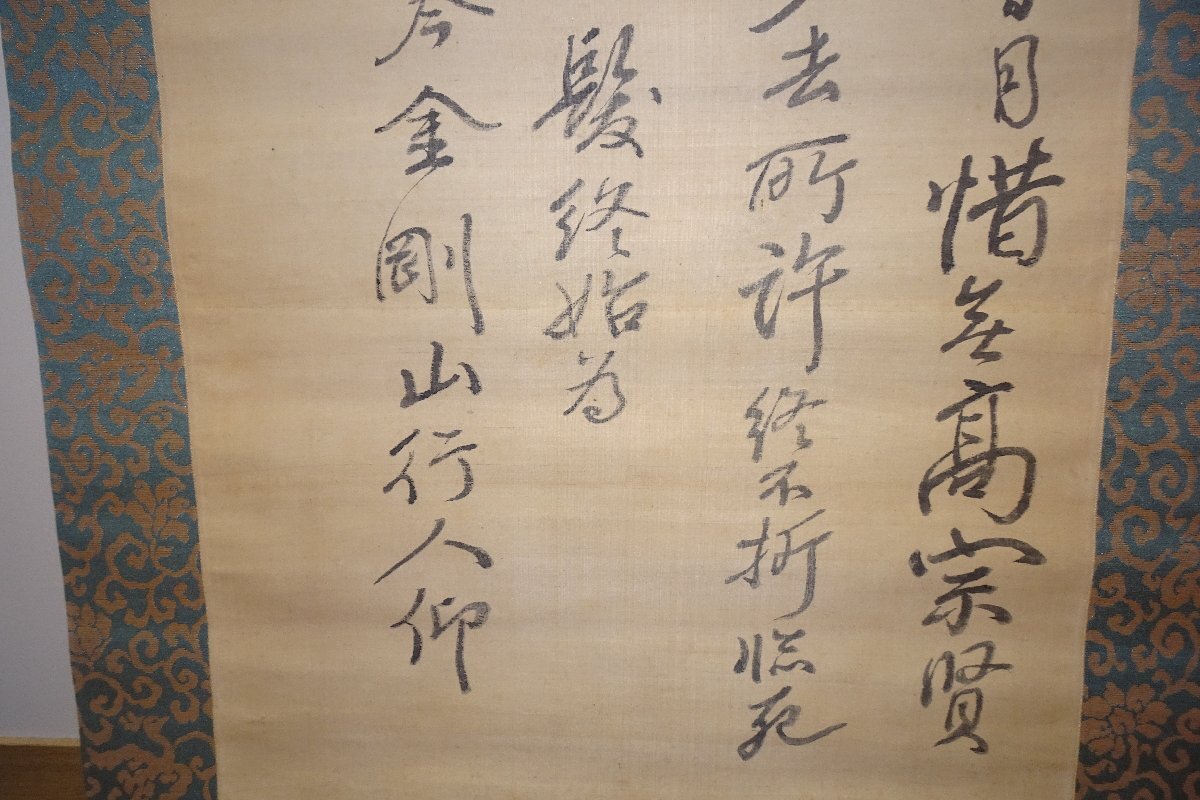 目惜無高宗賢
去所許終不折臨死
髪終始為
今金剛山行人仰